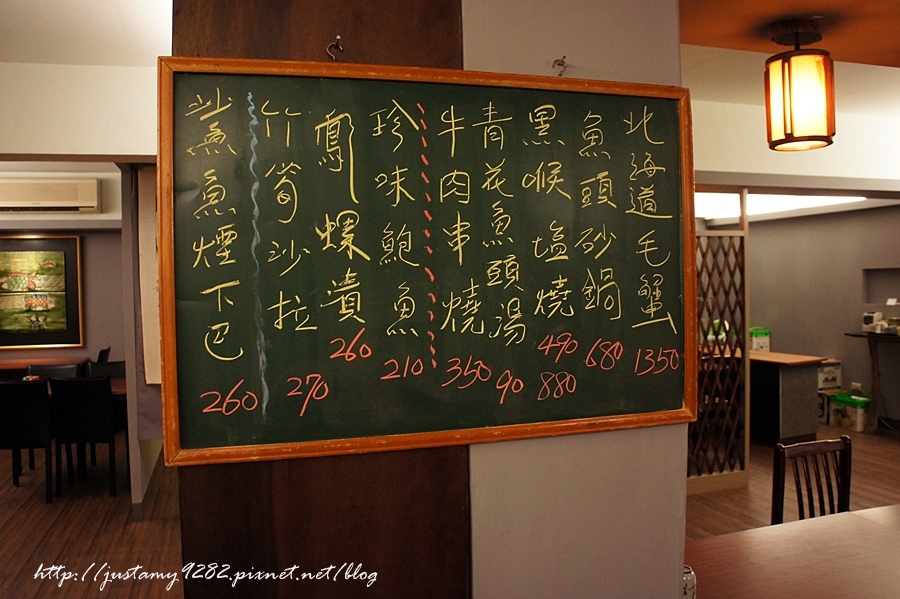 北海道毛蟹 1350
魚頭砂鍋 680
黑喉塩燒 490 880
青花魚頭湯 90
牛肉串燒 350
珍味鮑魚 210
鳳螺漬 260
竹筍沙拉 270
魚煙下巴 260
http://justamy9282.pixnet.net/blog